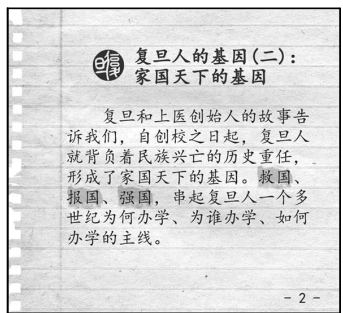 复旦
复旦人的基因(二)：
家国天下的基因
复旦和上医创始人的故事告
诉我们，自创校之日起，复旦人
就背负着民族兴亡的历史重任，
形成了家国天下的基因。救国、
报国、强国，串起复旦人一个多
世纪为何办学、为谁办学、如何
办学的主线。
- 2 -